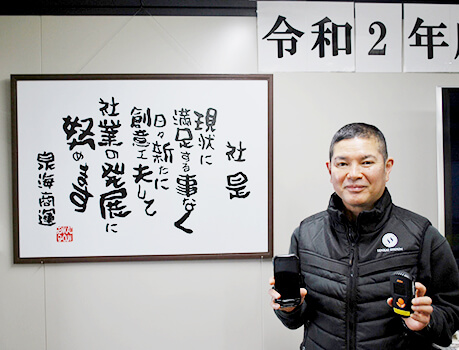 令和2年
社是
現状に
満足する事なく
日々新たに
創意工夫して
社業の発展に
努めます
泉海商運